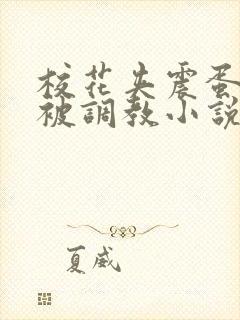 校花夹震蛋
被調教小說
夏威